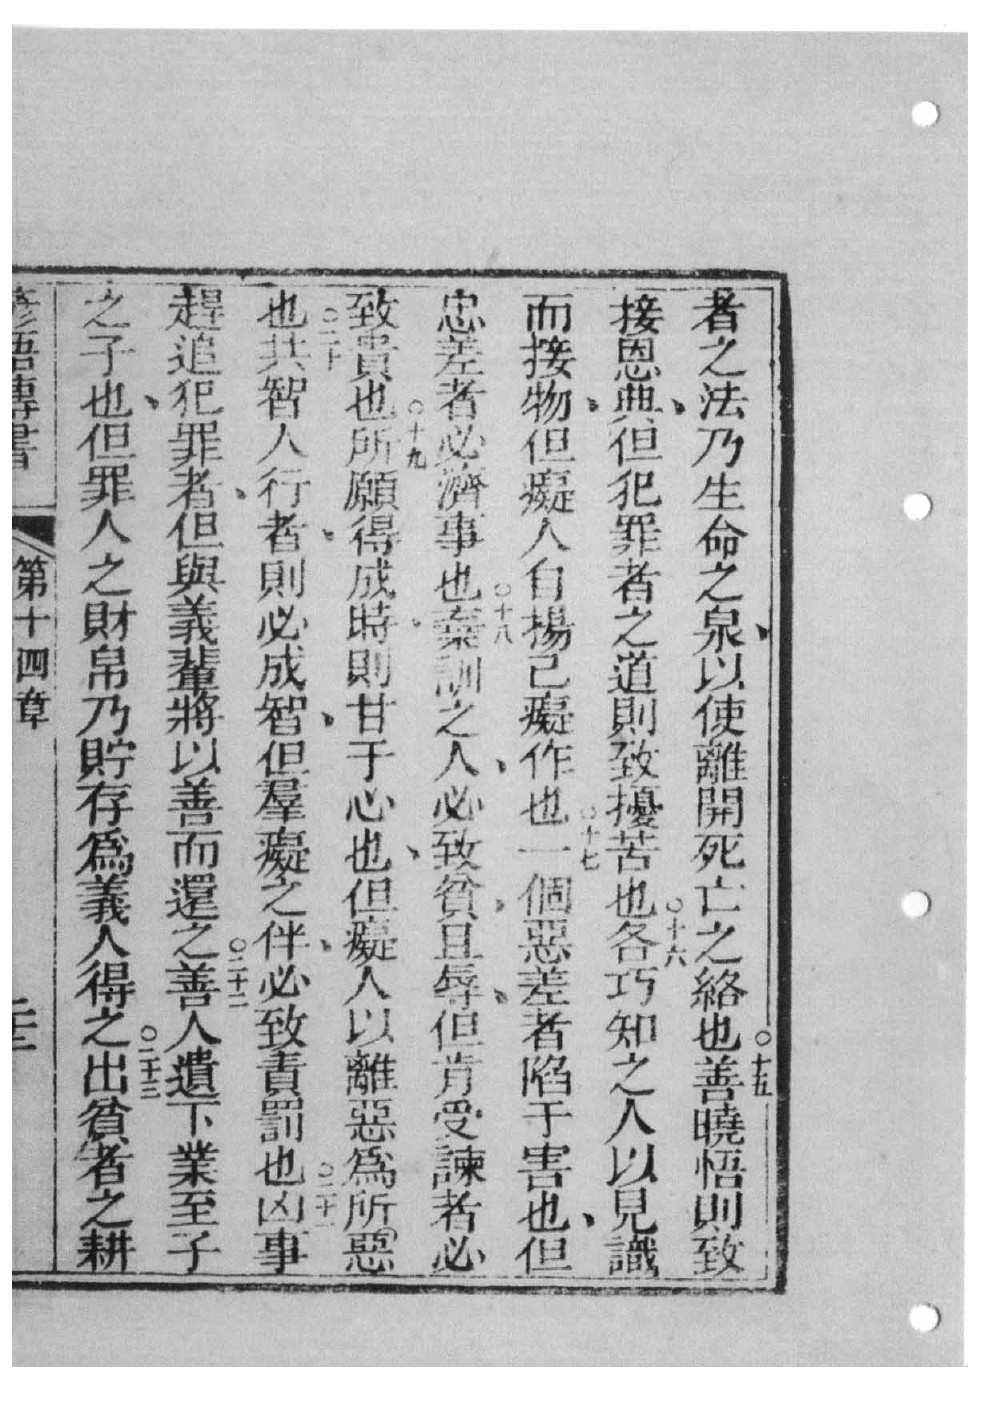 者之法乃生命之泉、以使離開死亡之絡也○十五善曉悟則致
接恩典、但犯罪者之道則致擾苦也○十六各巧知之人以見識
而接物、但癡人自揚己癡作也○十七一個惡差者陷于害也、但
忠差者必濟事也○十八棄訓之人、必致貧、且辱、但肯受諫者必
致貴也○十九所願得成時、則甘于心也、但癡人以離惡爲所惡
也○二十共智人行者、則必成智、但羣癡之伴、必致責罰也○二十一凶事
趕追犯罪者、但與義輩將以善而還之○二十二善人遺下業至子
之子也、但罪人之財帛乃貯存爲義人得之○二十三出貧者之耕
諺語傳書 第十四章